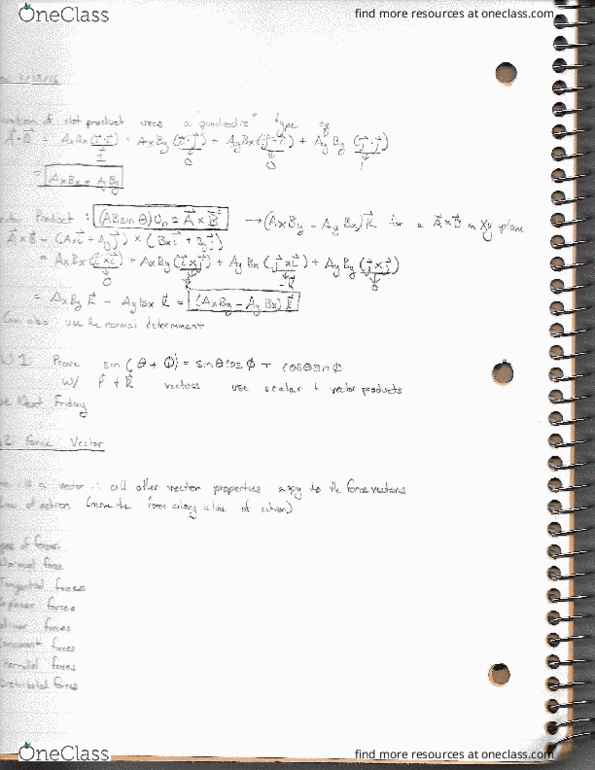 OneClass
find more resources at oneclass.com
of dot product uses a "quadratic" type eq
A⃗·B⃗ = AxBx(i⃗·i⃗) + AxBy(i⃗·j⃗) + AyBx(j⃗·i⃗) + AyBy(j⃗·j⃗)
1 0 0 1
= AxBx + AyBy
Product : (AB sin θ)Un = A⃗ × B⃗ → (AxBy - AyBx)k⃗ for a A⃗×B⃗ in xy plane
A⃗×B⃗ = (Axi⃗ + Ayj⃗) × (Bxi⃗ + Byj⃗)
= AxBx(i⃗×i⃗) + AxBy(i⃗×j⃗) + AyBx(j⃗×i⃗) + AyBy(j⃗×j⃗)
0 k⃗ -k⃗ 0
= AxBy k⃗ - AyBx k⃗ = (AxBy - AyBx)k⃗
Can also use the normal determinant
W 1: Prove sin(θ + Φ) = sinθcosΦ + cosθsinΦ
w/ + R⃗ vectors use scalar + vector products
Next Friday
2 Force Vector
is a vector ∴ all other vector properties apply to the force vectors
Line of action (move the force along a line of action)
of forces:
Normal force
Tangential forces
Coplanar forces
forces
Concurrent forces
Parallel forces
Distributed forces
OneClass
find more resources at oneclass.com